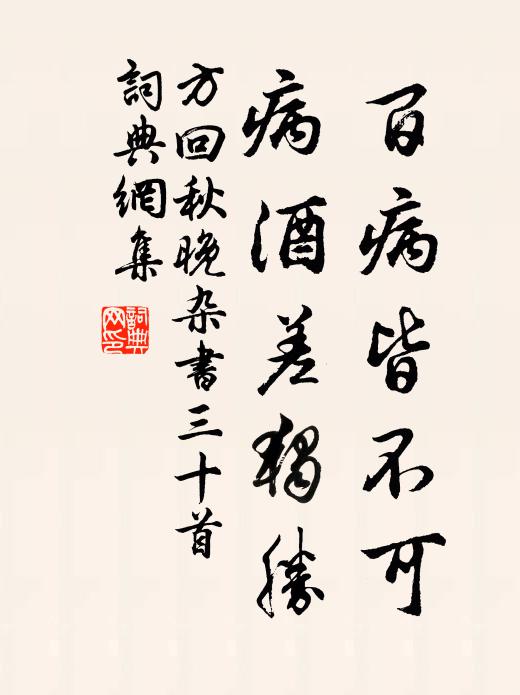 百病皆不可
病酒差獨勝
方回秋晚杂書三十首
詞典網集
詞典网印